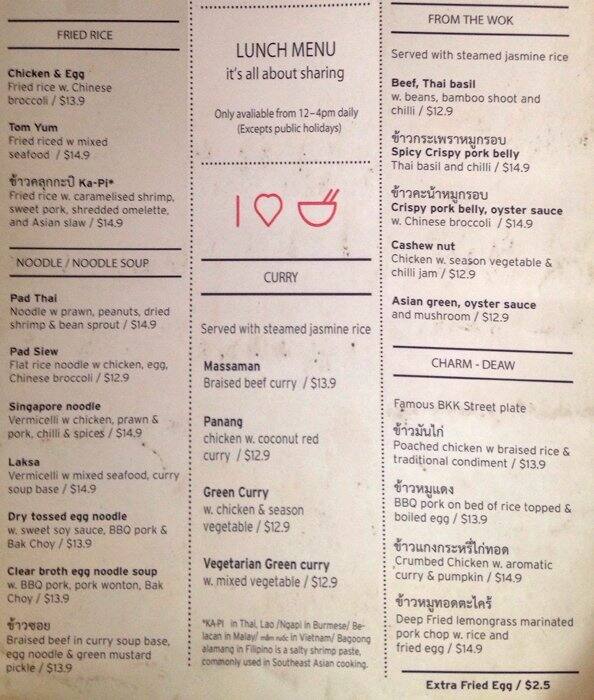 FRIED RICE
Chicken & Egg
Fried rice w. Chinese
broccoli / $13.9
Tom Yum
Fried riced w mixed
seafood / $14.9
ข้าวคลุกกะปิ Ka-Pi*
Fried rice w. caramelised shrimp,
sweet pork, shredded omelette,
and Asian slaw / $14.9
NOODLE / NOODLE SOUP
Pad Thai
Noodle w prawn, peanuts, dried
shrimp & bean sprout / $14.9
Pad Siew
Flat rice noodle w chicken, egg,
Chinese broccoli / $12.9
Singapore noodle
Vermicelli w chicken, prawn &
pork, chilli & spices / $14.9
Laksa
Vermicelli w mixed seafood, curry
soup base / $14.9
Dry tossed egg noodle
w. sweet soy sauce, BBQ pork &
Bak Choy / $13.9
Clear broth egg noodle soup
w. BBQ pork, pork wonton, Bak
Choy / $13.9
ข้าวซอย
Braised beef in curry soup base,
egg noodle & green mustard
pickle / $13.9
LUNCH MENU
it's all about sharing
Only avaliable from 12-4pm daily
(Excepts public holidays)
I
CURRY
Served with steamed jasmine rice
Massaman
Braised beef curry / $13.9
Panang
chicken w. coconut red
curry / $12.9
Green Curry
w. chicken & season
vegetable / $12.9
Vegetarian Green curry
w. mixed vegetable / $12.9
*KA-PI in Thai, Lao /Ngapi in Burmese/ Be-
lacan in Malay/ mắm ruốc in Vietnam/ Bagoong
alamang in Filipino is a salty shrimp paste,
commonly used in Southeast Asian cooking.
FROM THE WOK
Served with steamed jasmine rice
Beef, Thai basil
w. beans, bamboo shoot and
chilli / $12.9
ข้าวกระเพราหมูกรอบ
Spicy Crispy pork belly
Thai basil and chilli / $14.9
ข้าวคะน้าหมูกรอบ
Crispy pork belly, oyster sauce
w. Chinese broccoli / $14.9
Cashew nut
Chicken w. season vegetable &
chilli jam / $12.9
Asian green, oyster sauce
and mushroom / $12.9
CHARM - DEAW
Famous BKK Street plate
ข้าวมันไก่
Poached chicken w braised rice &
traditional condiment / $13.9
ข้าวหมูแดง
BBQ pork on bed of rice topped &
boiled egg / $13.9
ข้าวแกงกะหรี่ไก่ทอด
Crumbed Chicken w. aromatic
curry & pumpkin / $14.9
ข้าวหมูทอดตะไคร้
Deep Fried lemongrass marinated
pork chop w. rice and
fried egg / $14.9
Extra Fried Egg / $2.5